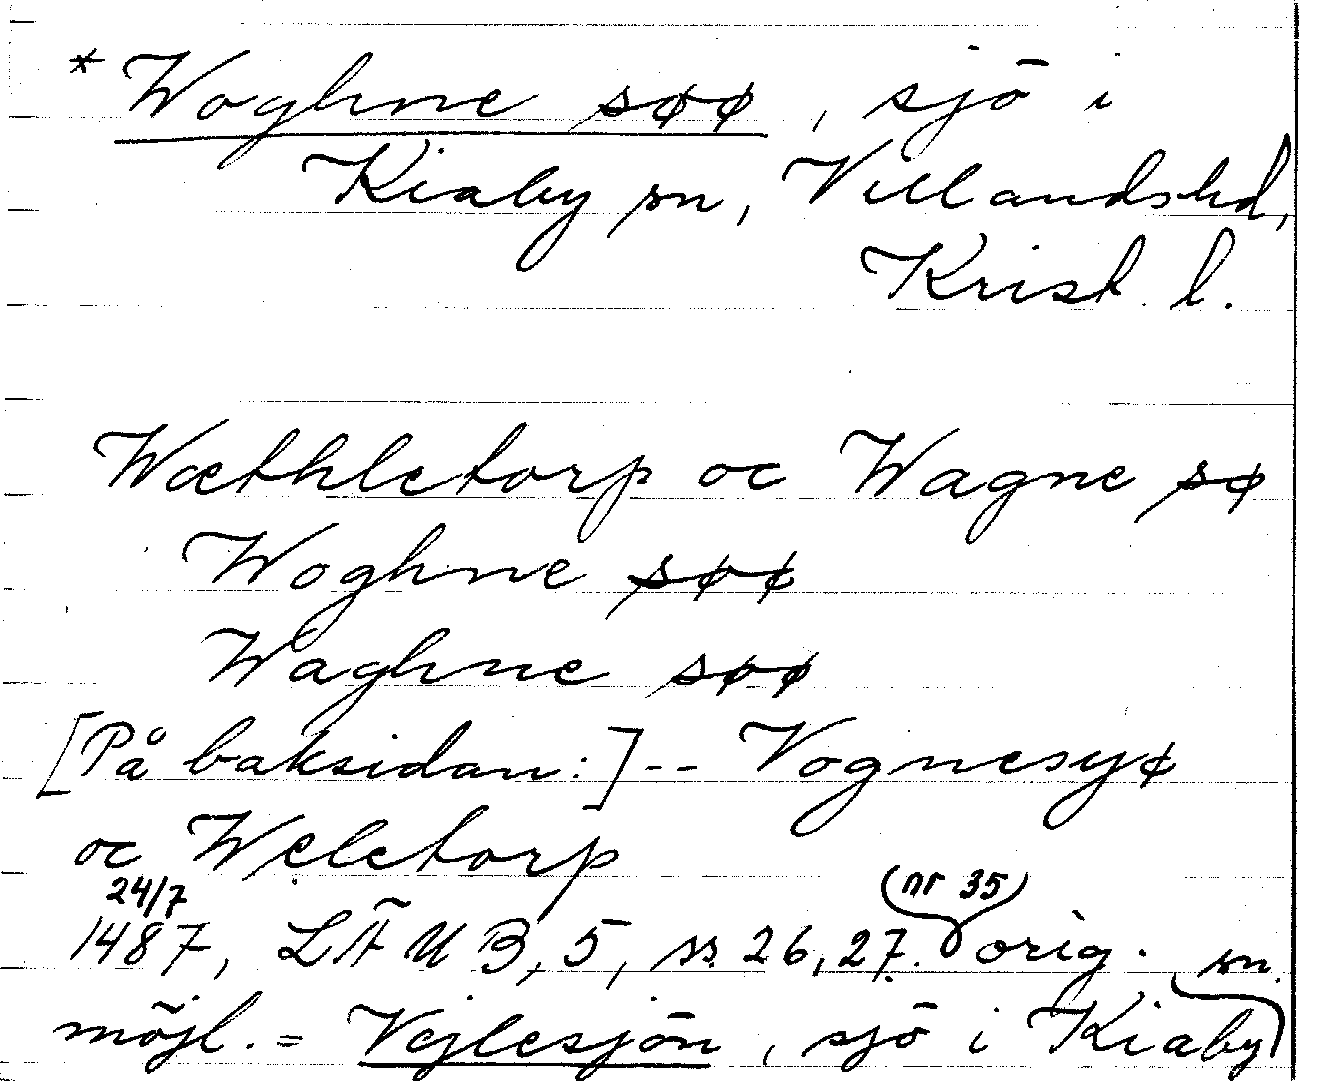 * Woghne søø, sjö i
Kiaby sn, Villands hd,
Krist. l.
Wæthletorp oc Wagne sø
Woghne søø
Waghne søø
[På baksidan:] -- Vognesyø
oc Weletorp
24/7 (nr 35)
1487, LÄUB, 5, ss. 26, 27. orig.
möjl. = Vejlesjön, sjö i Kiaby sn.